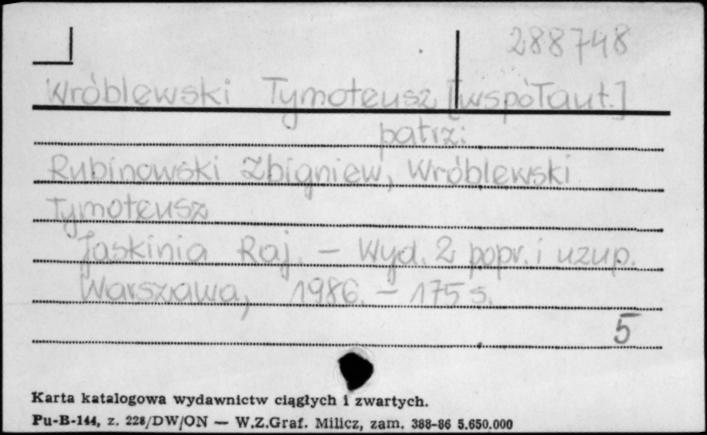 288748
Wróblewski Tymoteusz [współaut.]
patrz:
Rubinowski Zbigniew, Wróblewski
Tymoteusz
Jaskinia Raj. - Wyd. 2 popr. i uzup.
Warszawa, 1986. - 175 s.
5
Karta katalogowa wydawnictw ciągłych i zwartych.
Pu-B-144, z. 228/DW/ON — W.Z.Graf. Milicz, zam. 388-86 5.650.000